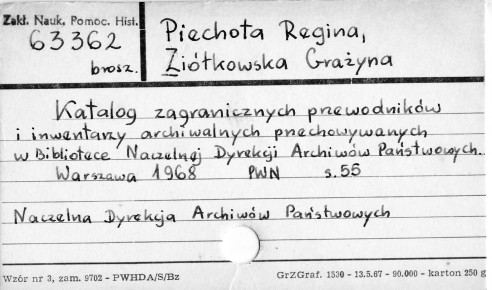 Zakł. Nauk. Pomoc. Hist.
63362
brosz.
Piechota Regina,
Ziółkowska Grażyna
Katalog zagranicznych przewodników
i inwentarzy archiwalnych przechowywanych
w Bibliotece Naczelnej Dyrekcji Archiwów Państwowych.
Warszawa 1968 PWN s. 55
Naczelna Dyrekcja Archiwów Państwowych
Wzór nr 3, zam. 9702 - PWHDA/S/Bz
GrZGraf. 1530 - 13.5.67 - 90.000 - karton 250 g